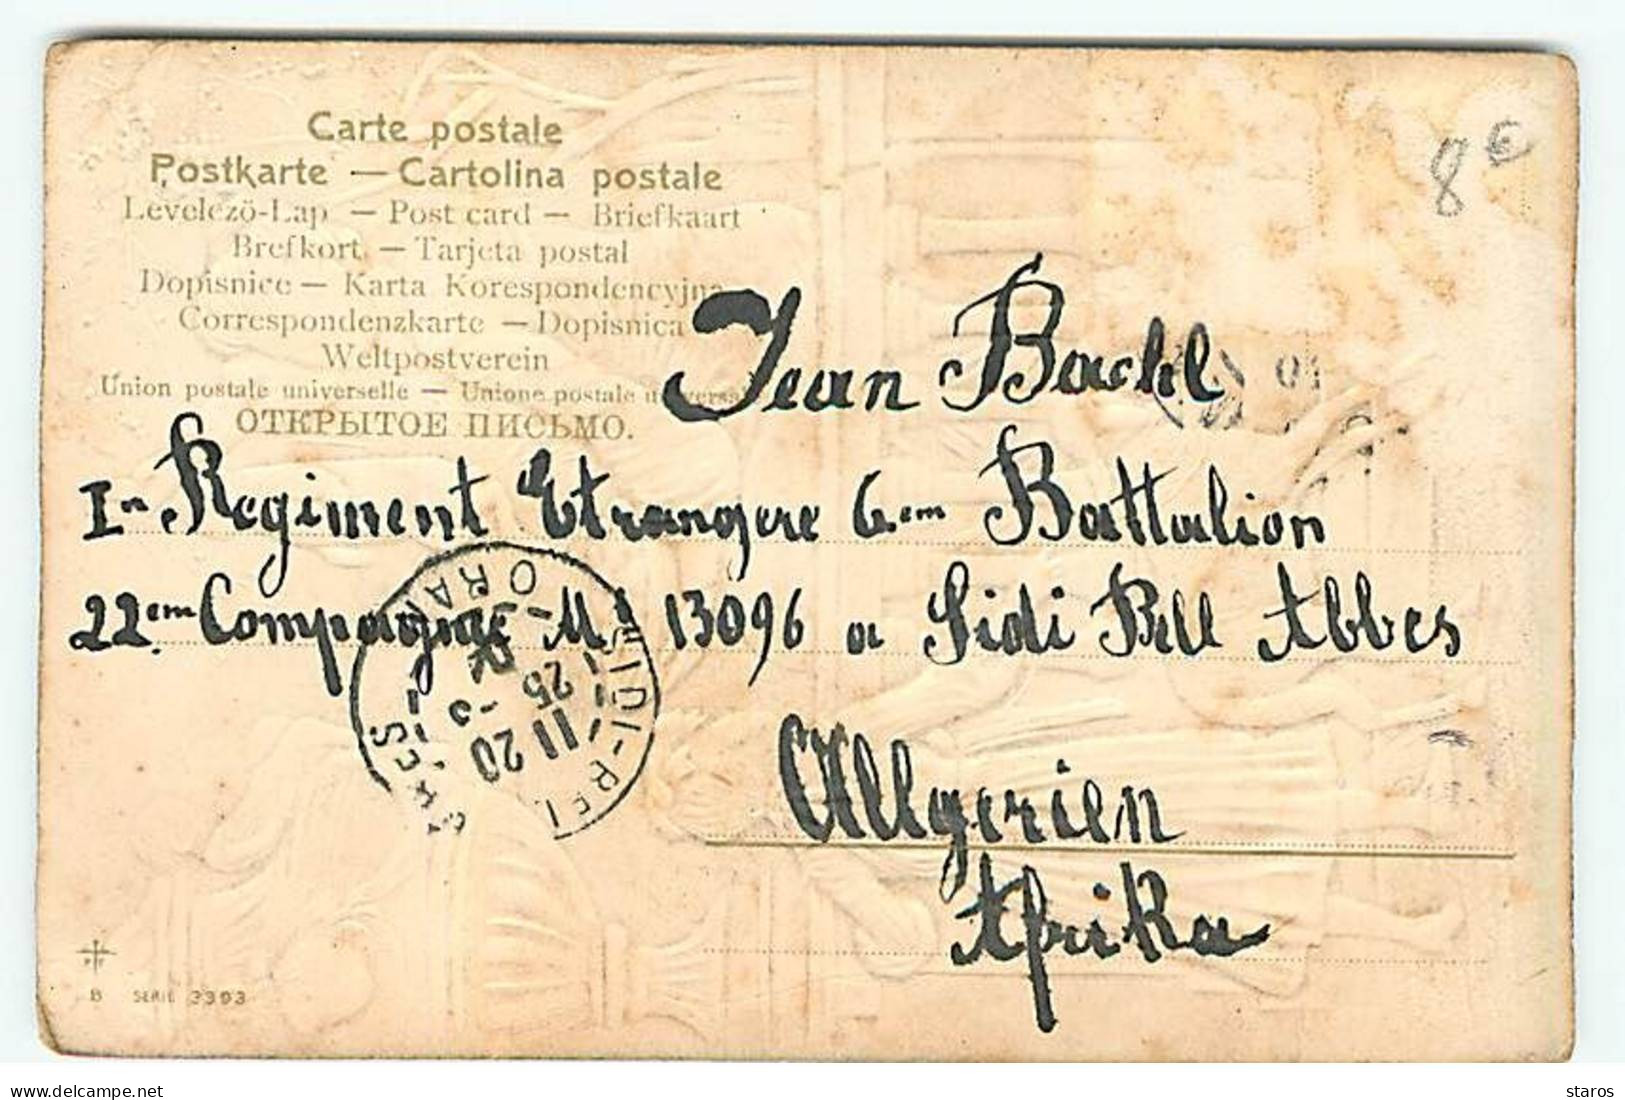 Carte postale
Postkarte — Cartolina postale
Levelezö-Lap — Post card — Briefkaart
Brefkort — Tarjeta postal
Dopisnice — Karta Korespondencyjna
Correspondenzkarte — Dopisnica
Weltpostverein
Union postale universelle — Unione postale universa
ОТКРЫТОЕ ПИСЬМО.
8 €
Jean Bachl
Ier Regiment Etrangere 6.em Battalion
22em Compagnie M 13096 a Sidi Bell Abbes
Allgerien
Afrika
SIDI-BEL-ABBÈS
ORAN
11 20
25 -3
B SERIE 3393
delcampe.net
staros